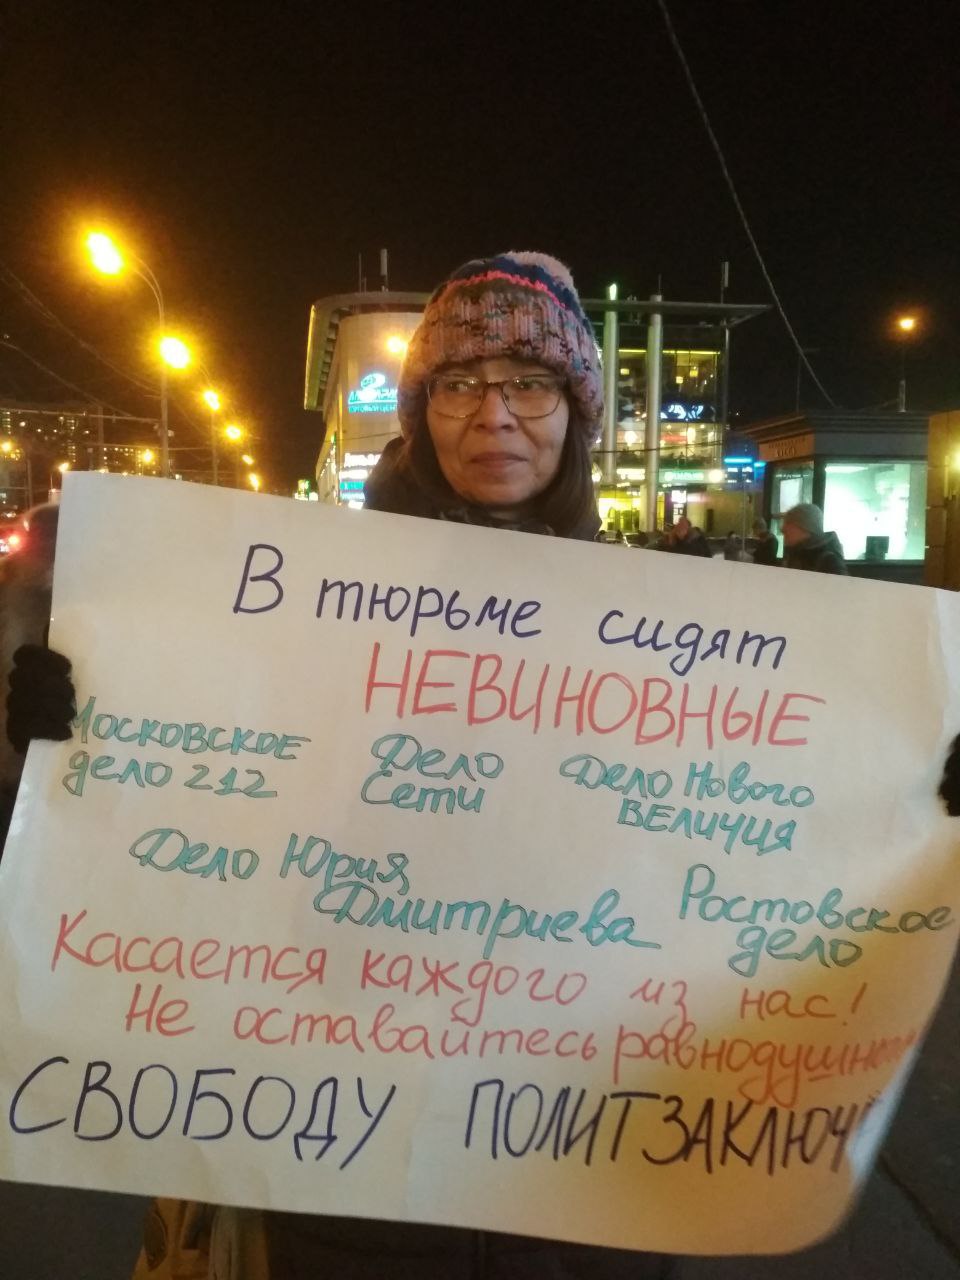 В тюрьме сидят
НЕВИНОВНЫЕ
Московское дело 212
Дело Сети
Дело Нового Величия
Дело Юрия Дмитриева
Ростовское дело
Касается каждого из нас!
Не оставайтесь
СВОБОДУ
ТОРГОВЫЙ ЦЕНТР